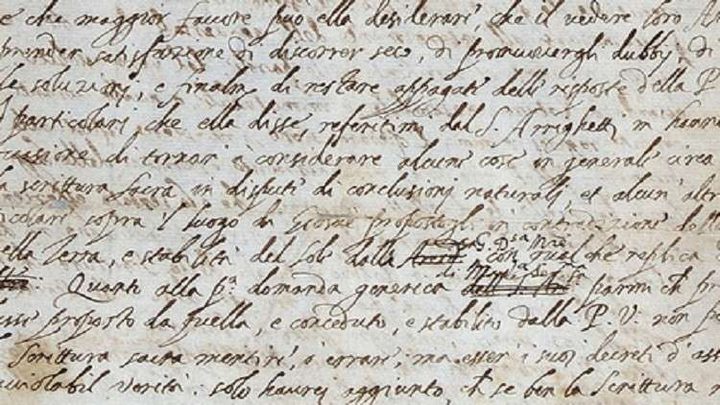 e che maggior favore può ella desiderare che il vedere loro
prender satisfazione di discorrer seco, di promuovergli dubbÿ, di
le soluzioni, e finalm.te di restare appagate delle risposte della P.
particolari che ella disse, referitimi dal S. Arrighetti m hanno
occasione di tornar' à considerare alcune cose in generale circa
la scrittura sacra in dispute di conclusioni naturali, et alcun' altre
sopra 'l luogo di Giosue propostogli in contradizione della
della Terra, e stabilità del Sole dalla G. D.sa M.re con qualche replica
Quanto alla p.a domanda generica di Mad.a Ser.ma parmi ch
proposto da quella, e conceduto, e stabilito dalla P. V. non
Scrittura sacra mentire, ò errare; ma esser i suoi decreti d'ass
inviolabil verità: solo haurei aggiunto, ch se ben la Scrittura